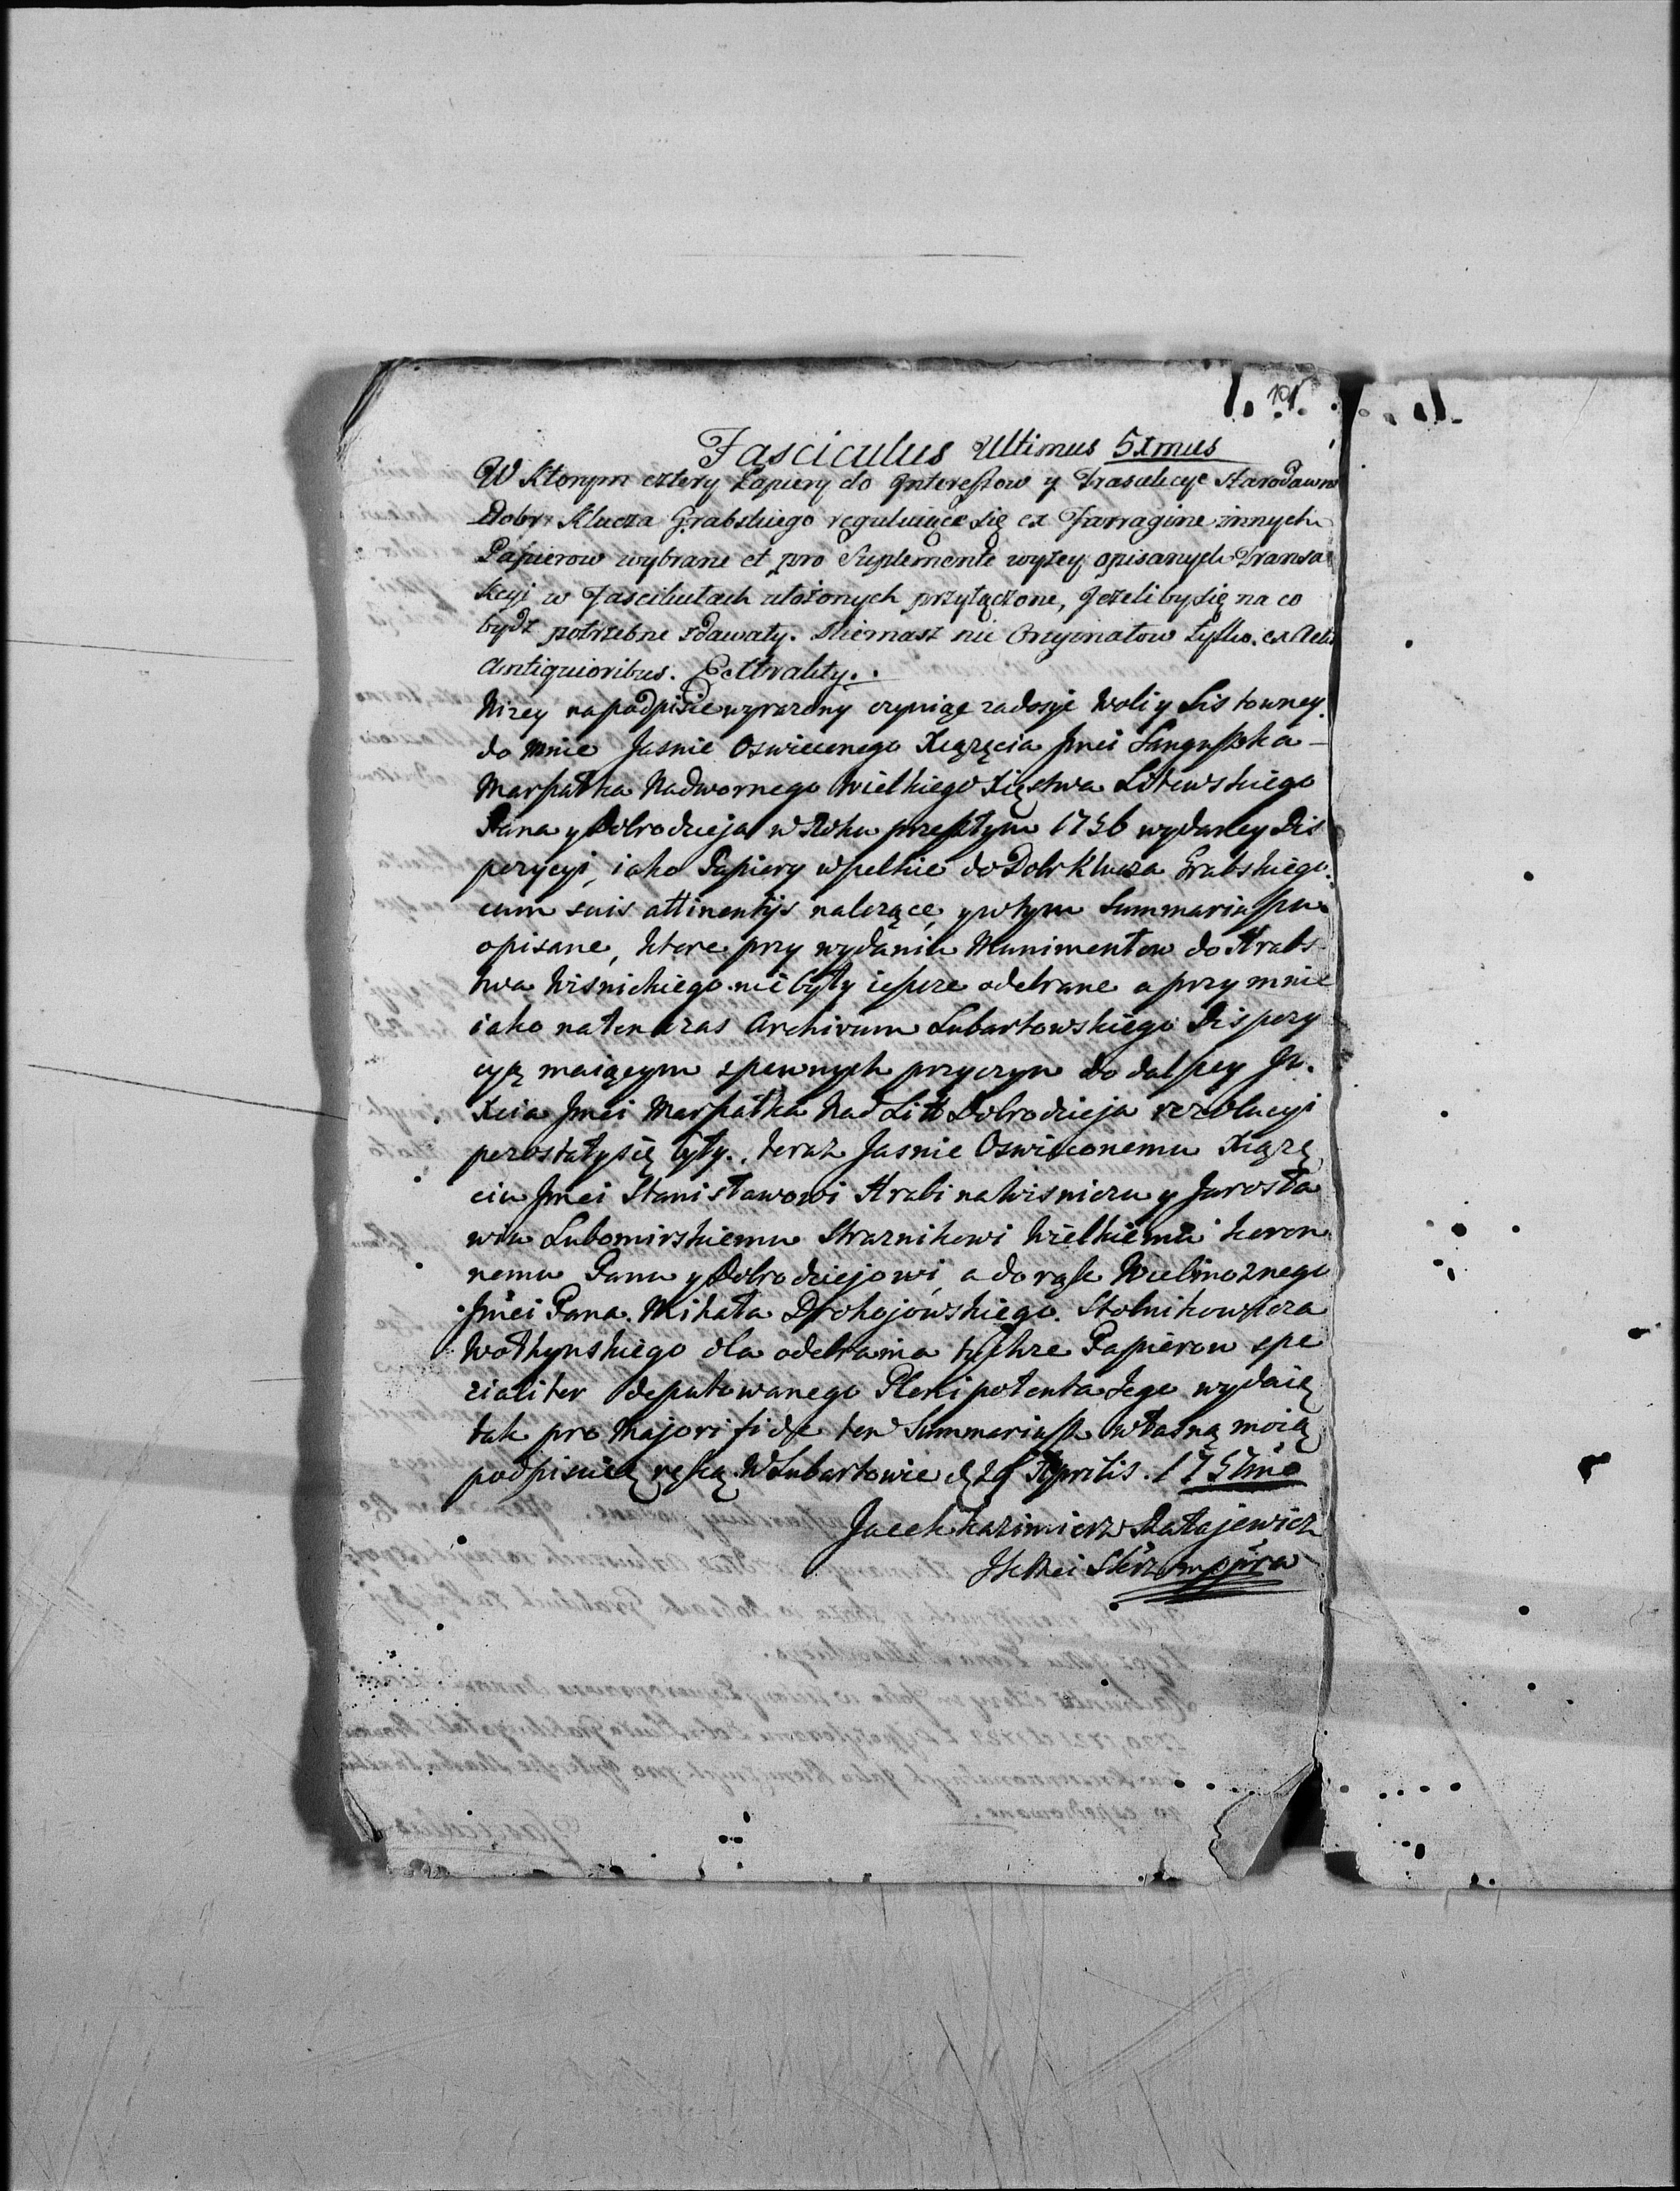 101.
Fasciculus Ultimus 51mus
W Ktorym cztery Papiery do Interessow y Trasakcye Starodawne
Dobr Klucza Grabskiego reguluiące się ex Farragine innych
Papierow wybrane et pro Suplemento wyżey opisanych Transa
kcyi w Fascikułach ułożonych przyłączone, Jeżeli by się na co
bydź potrzebne zdawały. Niemasz nic Oryginałow tylko ex Actis
Antiquioribus. Extrakty.
Niżey na podpisie wyrazony czyniąc zadosyć Woli y Listowney
do mnie Jasnie Oswieconego Xiążęcia Jmci Sanguszka
Marszałka Nadwornego Wielkiego Xięstwa Litewskiego
Pana y Dobrodzieja w Roku przeszłym 1756 wydaney Dis
pozycyi, iako Papiery wszelkie do Dobr Klucza Grabskiego
cum suis attinentijs nalezące, y w tym Summariuszu
opisane, ktore przy wydaniu Munimentow do Hrabs
twa Wisnickiego nie były ieszcze odebrane a przy mnie
iako na ten czas Archivum Lubartowskiego Dispozy
cyą maiącym z pewnych przyczyn do dalszey Jo.
Xcia Jmci Marszałka Nad Litt Dobrodzieja rezolucyi
pozostały się były. teraz Jasnie Oswieconemu Xiążę
ciu Jmci Stanisławowi Hrabi na Wisniczu y Jarosła
wiu Lubomirskiemu Straznikowi Wielkiemu Koron
nemu Panu y Dobrodziejowi, a do rąk Wielmoznego
Jmci Pana Michała Drohojowskiego Stolnikowicza
Wołhynskiego dla odebrania tychze Papierow spe
cialiter deputowanego Plenipotenta Jego wydaię
tak pro Majori fide ten Summariusz własną moią
podpisuię ręką. W Lubartowie d 29 Aprilis. 1757mo
Jacek Kazimierz Ratajewicz